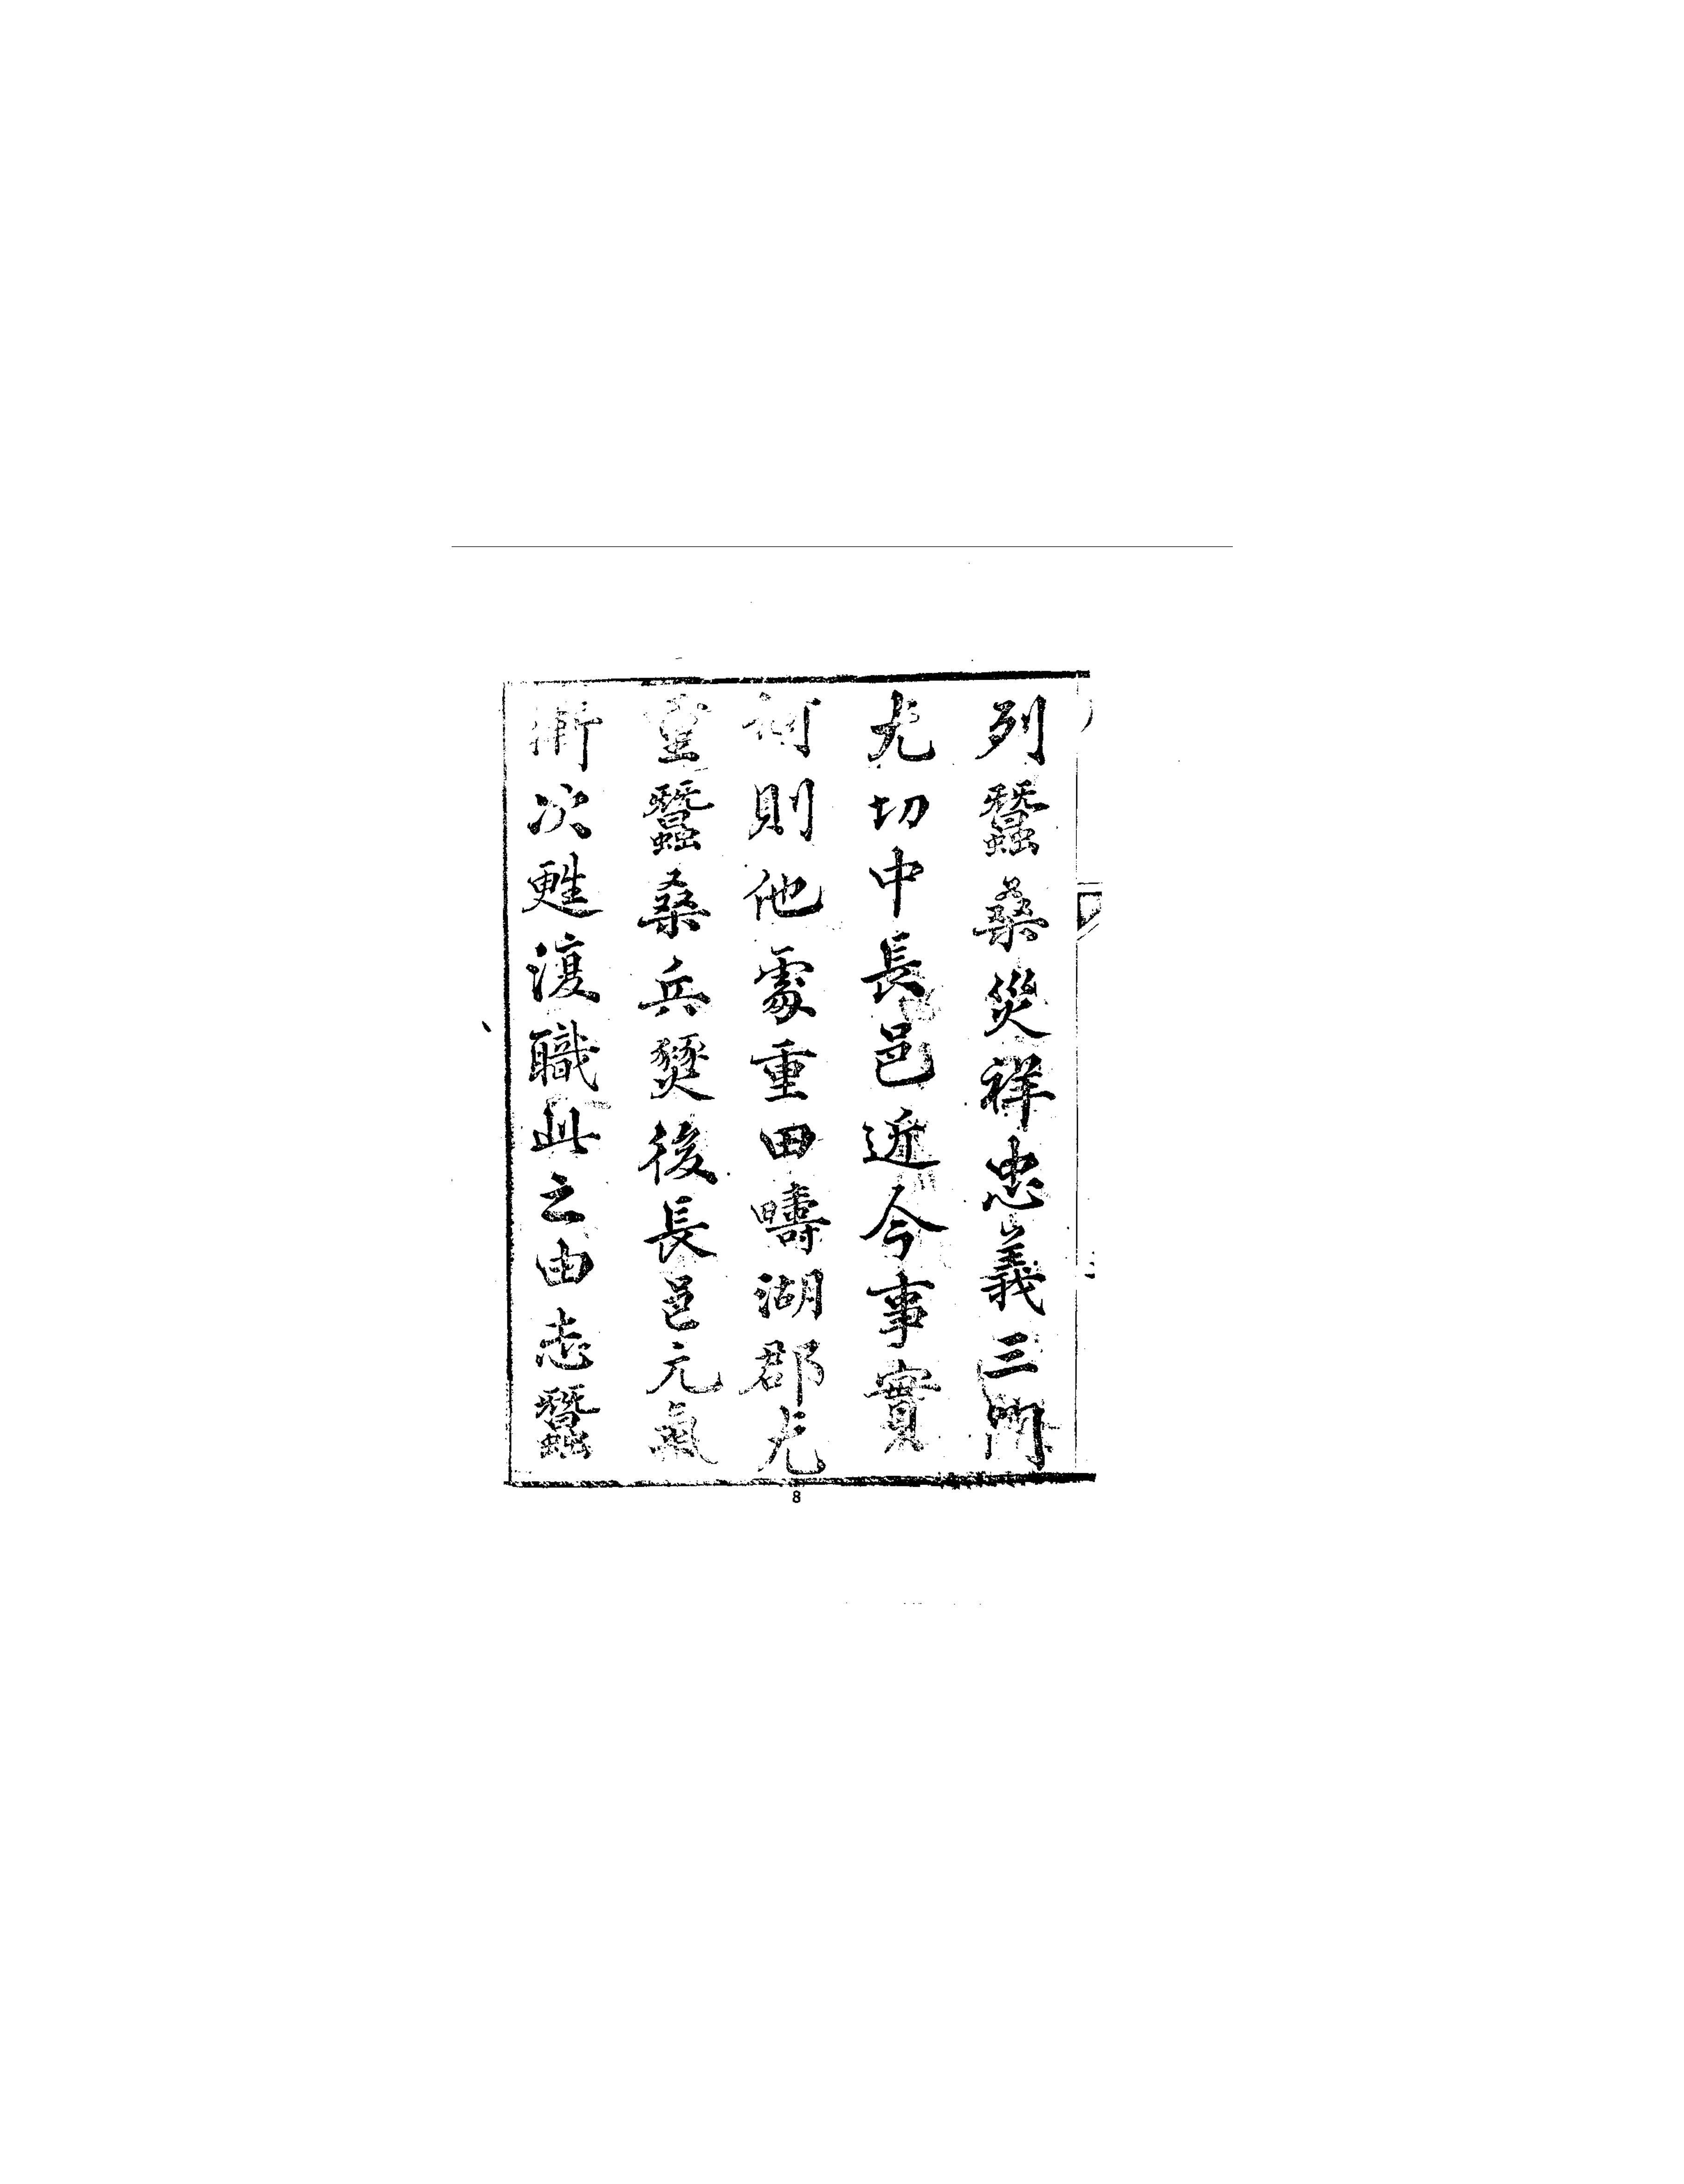 列蠶桑災祥忠義三門
尤切中長邑近今事實
何則他處重田疇湖郡尤
重蠶桑兵燹後長邑元氣
漸次甦復職此之由志蠶
8